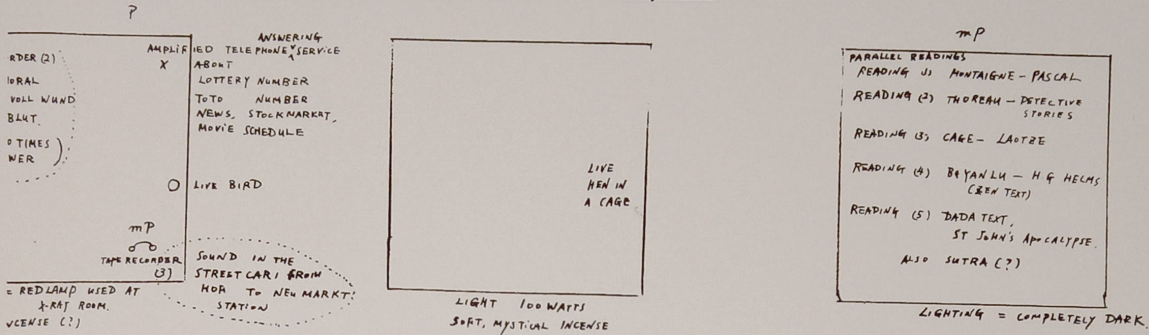 ?
ANSWERING
AMPLIFIED TELEPHONE SERVICE
X ABOUT
LOTTERY NUMBER
TOTO NUMBER
NEWS, STOCKMARKT,
MOVIE SCHEDULE
RDER (2)
VOLL WUND
BLUT.
TIMES
O LIVE BIRD
mP
TAPE RECORDER
(3)
SOUND IN THE
STREETCAR, FROM
TO NEUMARKT
STATION
= REDLAMP USED AT
X-RAY ROOM.
(?)
LIVE
HEN IN
A CAGE
LIGHT 100 WATTS
SOFT, MYSTICAL INCENSE
mP
PARALLEL READINGS
READING 1) MONTAIGNE - PASCAL
READING (2) THOREAU - DETECTIVE
STORIES
READING (3) CAGE - LAOTZE
READING (4) - H G HELMS
(ZEN TEXT)
READING (5) DADA TEXT,
ST JOHN'S APOCALYPSE.
ALSO SUTRA (?)
LIGHTING = COMPLETELY DARK.